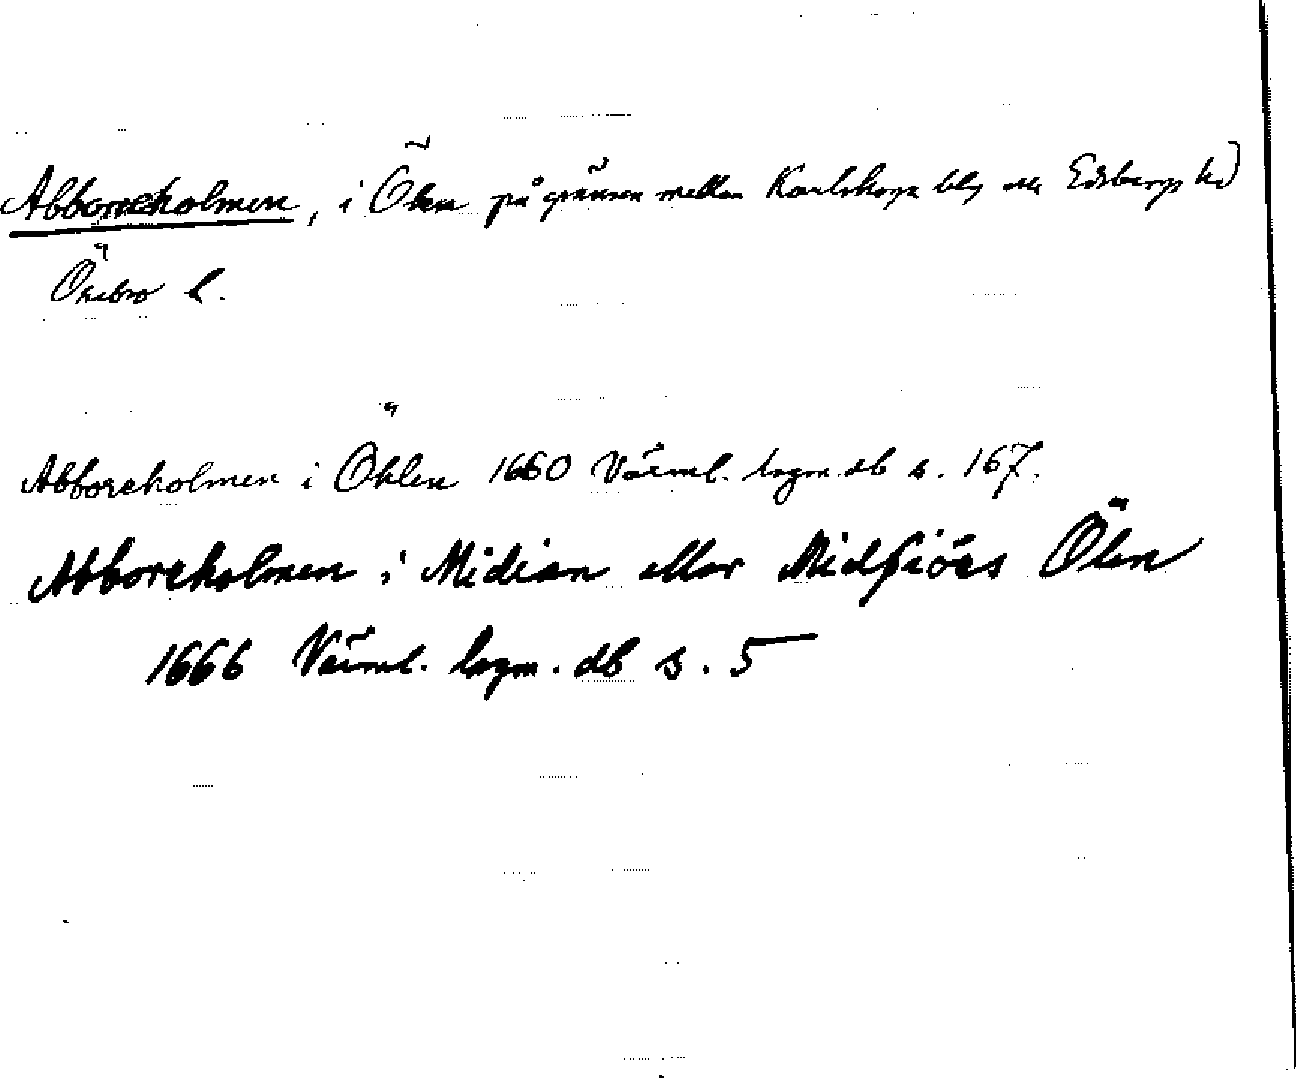 Abborreholmen, i Ölen på gränsen mellan Karlskoga blg och Edsbergs hd
Örebro l.
Abboreholmen i Öhlen 1660 Värml. lagm. db s. 167.
Abboreholmen i Midian eller Midsiöes Ölen
1666 Värml. lagm. db s. 5